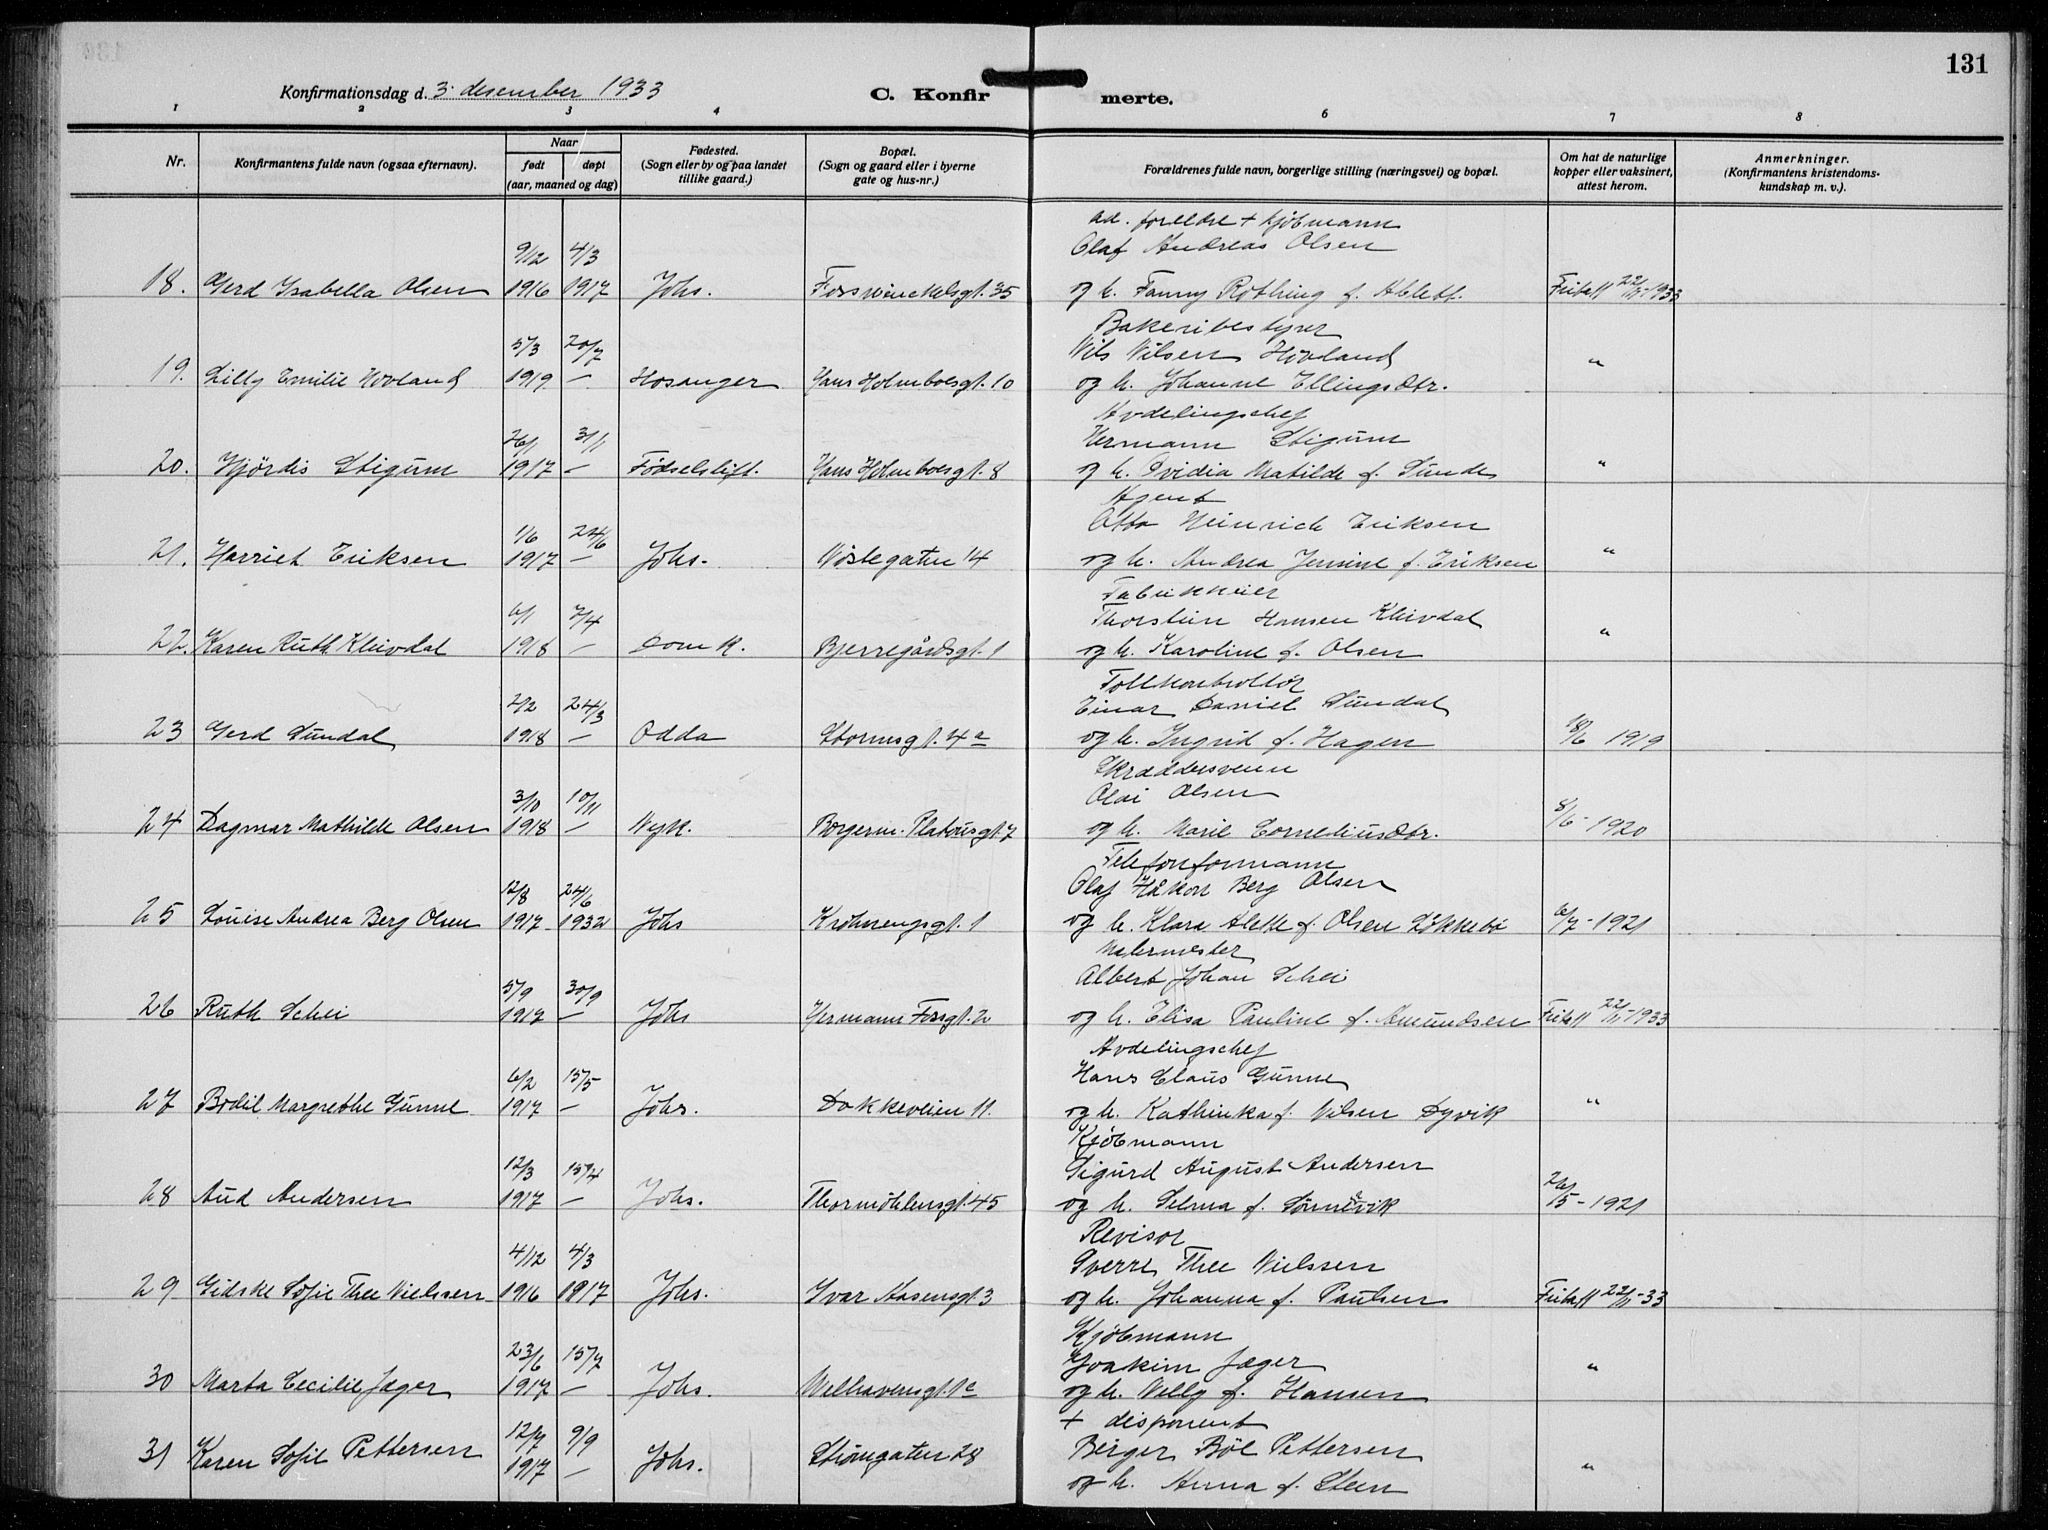 131
Konfirmationsdag d. 3. desember 1933 C. Konfirmerte.
1 2 3 4 5 6 7 8
Nr. Konfirmantens fulde navn (ogsaa efternavn). Naar født døpt (aar, maaned og dag) Fødested. (Sogn eller by og paa landet tillike gaard.) Bopæl. (Sogn og gaard eller i byerne gate og hus-nr.) Forældrenes fulde navn, borgerlige stilling (næringsvei) og bopæl. Om hat de naturlige kopper eller vaksinert, attest herom. Anmerkninger. (Konfirmantens kristendomskundskap m. v.).
ad. foreldre + kjöbmann
9/12 4/3 Olaf Andreas Olsen
18. Gerd Isabella Olsen 1916 1917 Johs. Foswinckelsgt. 35 og h. Fanny Röthing f. Ablett. Fritatt 22/11-1933
Bakeribestyrer
5/3 20/7 Nils Nilsen Hovland
19. Lilly Emilie Hovland 1919 – Hosanger Hans Holmboesgt. 10 og h. Johanne Ellingsdtr. "
Avdelingschef
26/1 31/1 Hermann Stigum
20. Hjördis Stigum 1917 – Födselstift. Hans Holmboesgt. 8 og h. Ovidia Matilde f. Sunde "
Agent
1/6 24/6 Otto Heinrich Eriksen
21. Harriet Eriksen 1917 – Johs. Nöstegaten 14 og h. Andrea Jensine f. Eriksen "
Fabrikkeier
6/1 7/4 Thorstein Hansen Kleivdal
22. Karen Ruth Kleivdal 1918 – Domk. Bjerregårdsgt. 1 og h. Karoline f. Olsen "
Tollkontrollör
2/2 24/3 Einar Daniel Sundal
23 Gerd Sundal 1918 – Odda Stormsgt. 4a og h. Ingrid f. Hagen 18/6 1919
Skreddersvenn
3/10 10/11 Olai Olsen
24 Dagmar Mathilde Olsen 1918 – Nyk. Borgerm. Platousgt. 7 og h. Marie Corneliusdtr. 8/6-1920
Telefonformann
12/8 24/6 Olaf Håkon Berg Olsen
25 Louise Andrea Berg Olsen 1917 1932 Johs Krohnengsgt. 1 og h. Klara Alette f. Olsen Lökkebö 6/7-1921
Malermester
5/9 30/9 Albert Johan Schei
26 Ruth Schei 1917 – Johs Hermann Fossgt. 2 og h. Elisa Pauline f. Amundsen Fritatt 22/11-1933
Avdelingschef
6/2 15/5 Hans Claus Gunne
27 Bodil Margrethe Gunne 1917 – Johs. Dokkeveien 11. og h. Kathinka f. Nilsen Dyvik "
Kjöbmann
12/3 15/4 Sigurd August Andersen
28 Aud Andersen 1917 – Johs. Thormöhlensgt. 45 og h. Selma f. Sönnevik 26/5-1921
Revisor
4/12 4/3 Sverre Thee Nielssen
29 Gidske Sofie Thee Nielssen 1916 1917 Johs. Ivar Aasensgt 3 og h. Johanna f. Paulsen Fritatt 22/11-33
Kjöbmann
23/6 15/7 Joakim Jæger
30 Marta Cecilie Jæger 1917 – Johs. Welhavensgt. 1c og h. Nelly f. Hansen "
+ disponent
12/7 9/9 Birger Böe Pettersen
31 Karen Sofie Pettersen 1917 – Johs. Strömgaten 28 og h. Anna f. Steen "